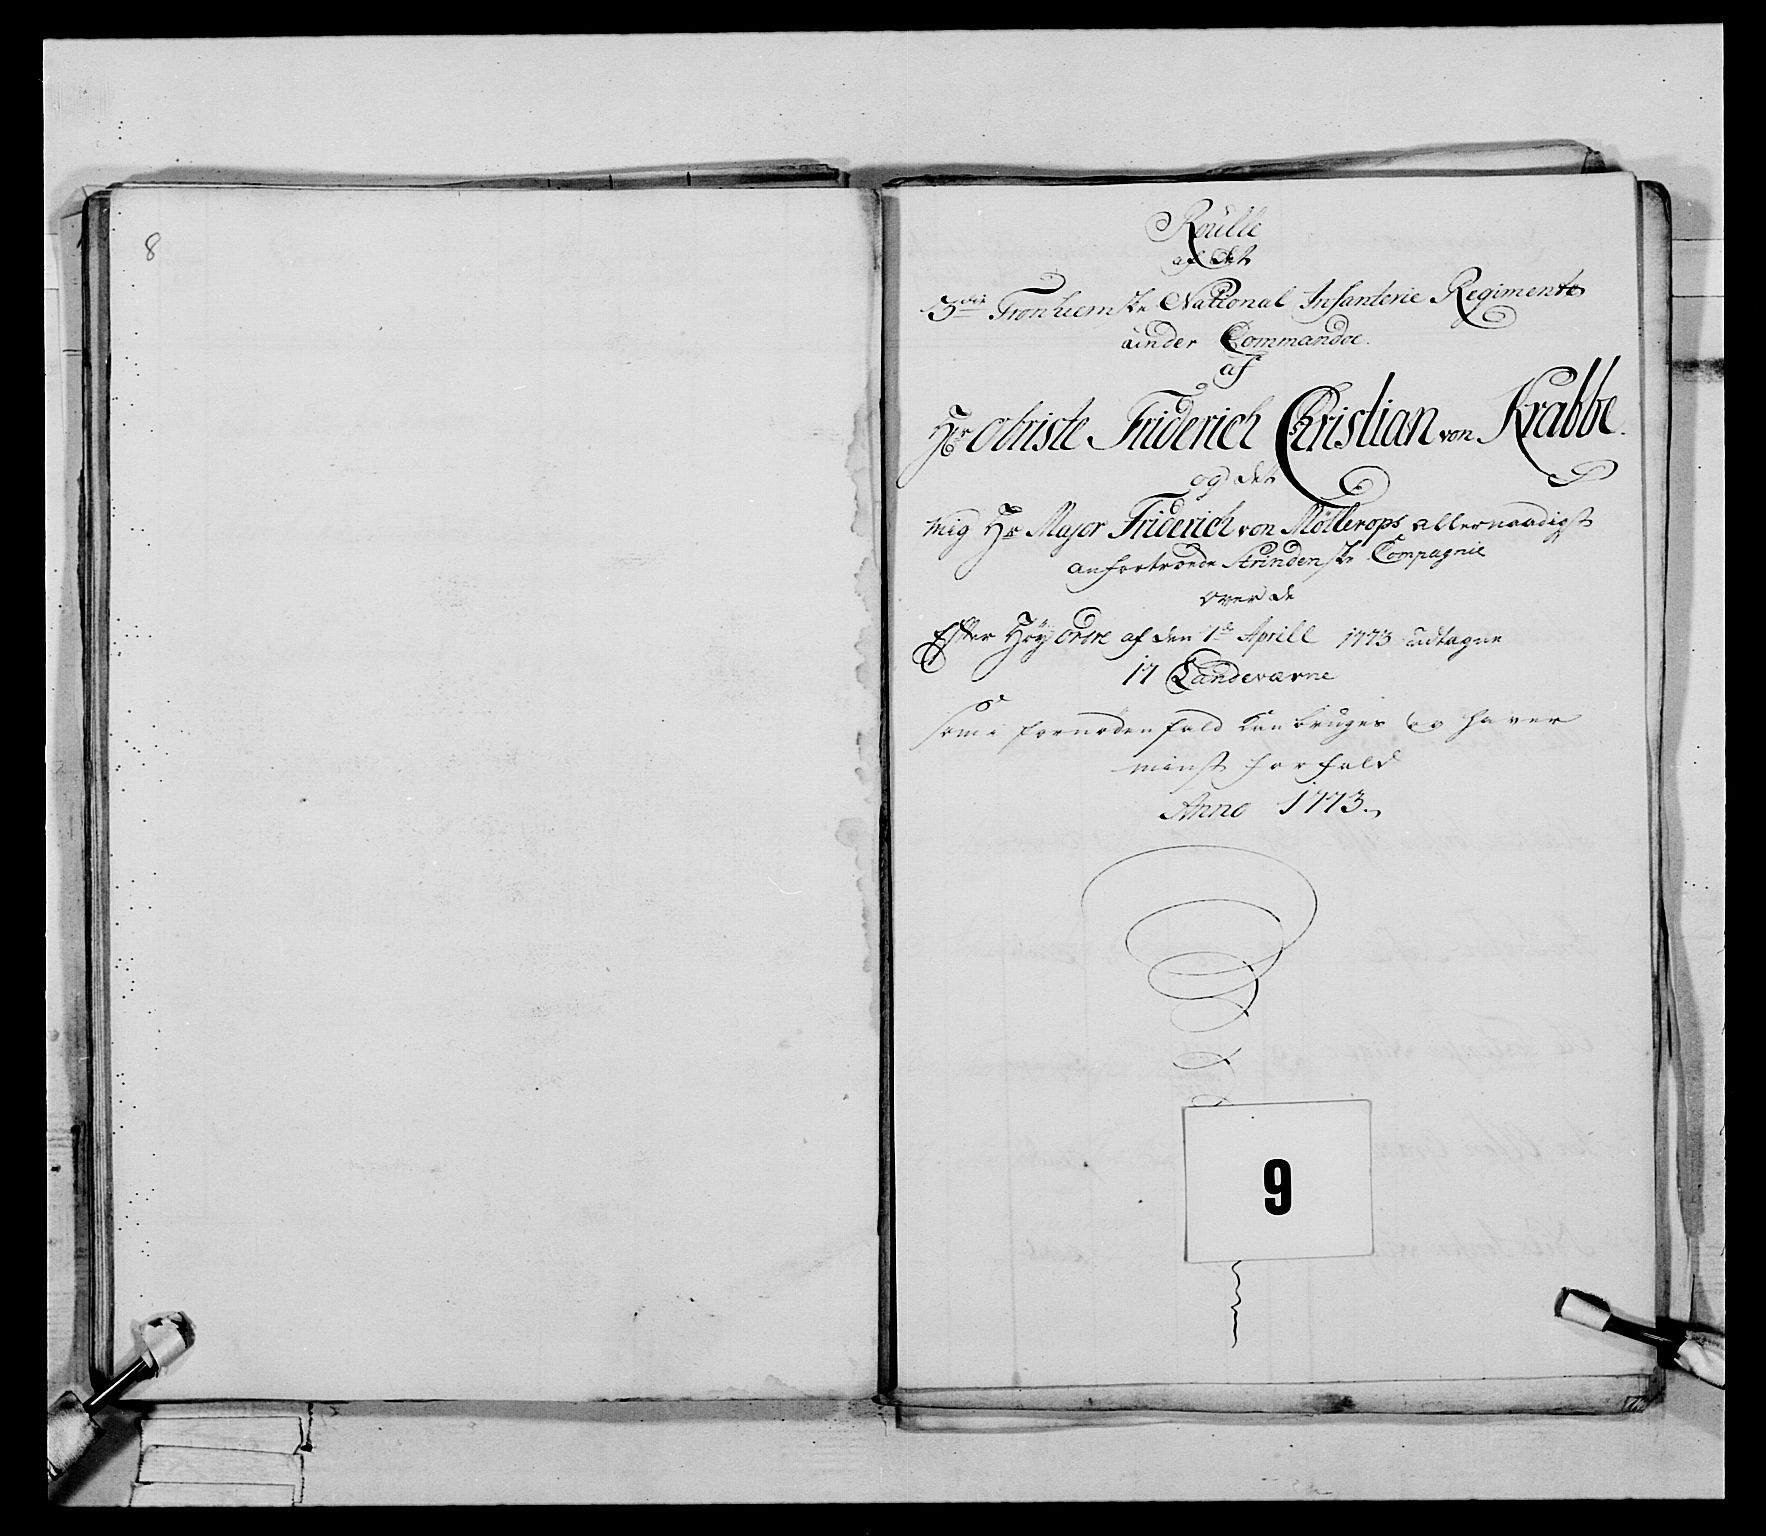 8
Roulle
af det
3die Tronhiemske National Infanterie Regimente
under Commandoe.
af
Hr Obriste Friderich Christian von Krabbe.
og det
Mig Hr Major Friderich von Möllerops allernaadigst
anfortroede Strindenske Compagnie
over de
Efter Høy ordre af den 1te Aprill 1773 udtagne
17 Landeværne
som i fornødenfald kan bruges og haver
minst forfald
Anno 1773.
9